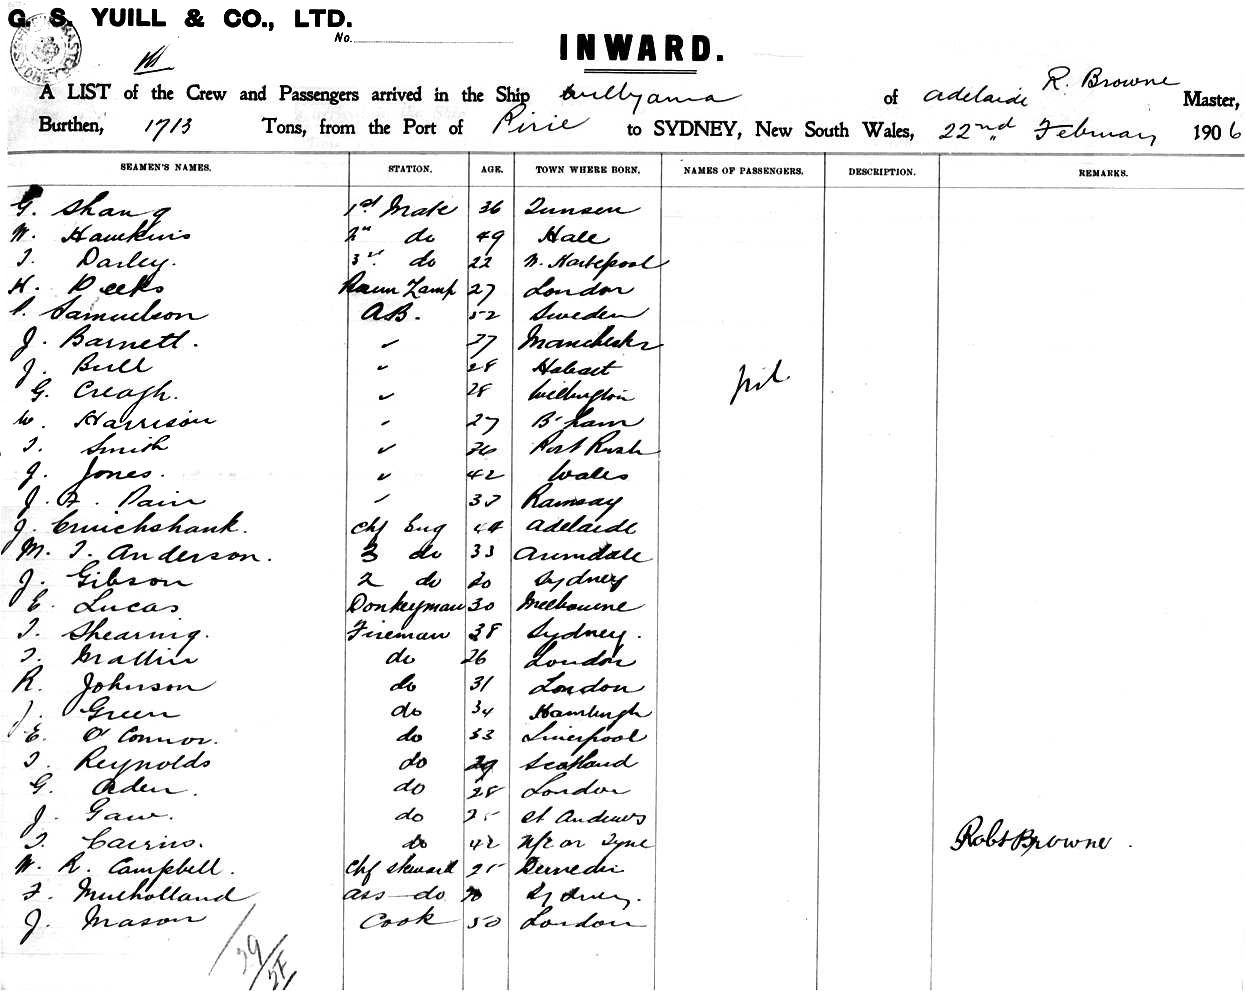 G. S. YUILL & CO., LTD.
No.
INWARD.
A LIST of the Crew and Passengers arrived in the Ship Willyama of Adelaide R. Browne Master,
Burthen, 1713 Tons, from the Port of Pirie to SYDNEY, New South Wales, 22nd February 1906
SEAMEN'S NAMES. STATION. AGE. TOWN WHERE BORN. NAMES OF PASSENGERS. DESCRIPTION. REMARKS.
G. Shang 1st Mate 36
W. Hawkins 2" do 49 Hale
T. Darley. 3rd do 22 W. Hartlepool
H. Deeks Lamp 27 London
Samuelson A.B. 52 Sweden
J. Barnett. " 27 Manchester
J. Bull " 28 Hobart
G. Creagh. " 28 Wellington nil
W. Harrison " 27 B'ham
T. Smith " 26 Port Rush
J. Jones. " 42 Wales
J. F. Pain " Ramsay
J. Cruichshank. Chf Eng 44 Adelaide
M. T. Anderson. 3 do 33 Arundale
J. Gibson 2 do Sydney
E. Lucas Donkeyman 30 Melbourne
T. Shearing. Fireman 38 Sydney.
T. do 26 London
R. Johnson do 31 London
J. Green do 34 Hamburgh
E. O'Connor. do 33 Liverpool
T. Reynolds do 29 Scotland
G. Aden. do 28 London
J. Gaw. do 25 St Andrews
T. Cairns. do 42 N/c on Tyne Robt Browne.
W. R. Campbell. Chf Steward 25 Dunedin
F. Mulholland ass do 20 Sydney.
J. Mason Cook 50 London
29/